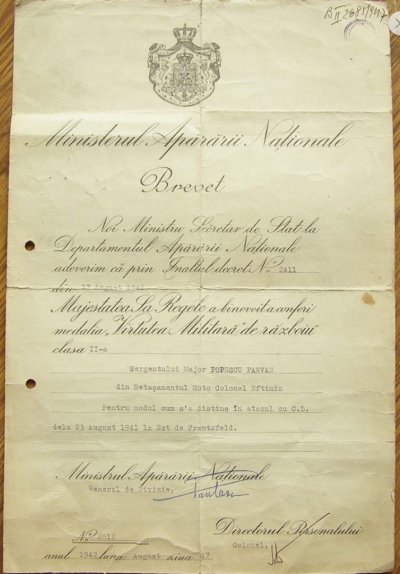 Ministerul Apărării Naționale
Brevet
Noi Ministru Secretar de Stat la
Departamentul Apărării Naționale
adeverim că prin Înaltul decret No. 2411
din 17 August 1942
Majestatea Sa Regele a binevoit a conferi
medalia „Virtutea Militară" de războiu
clasa II-a
Sergentului Major POPESCU PARVAN
din Detaşamentul Moto Colonel Eftimiu
Pentru modul cum s'a distins în atacul cu C.L.
dela 23 August 1941 la Est de Frantzfeld.
Ministrul Apărării Naționale
General de Divizie,
Directorul Personalului
Colonel,
No. 2012
anul 1942 luna August ziua 17